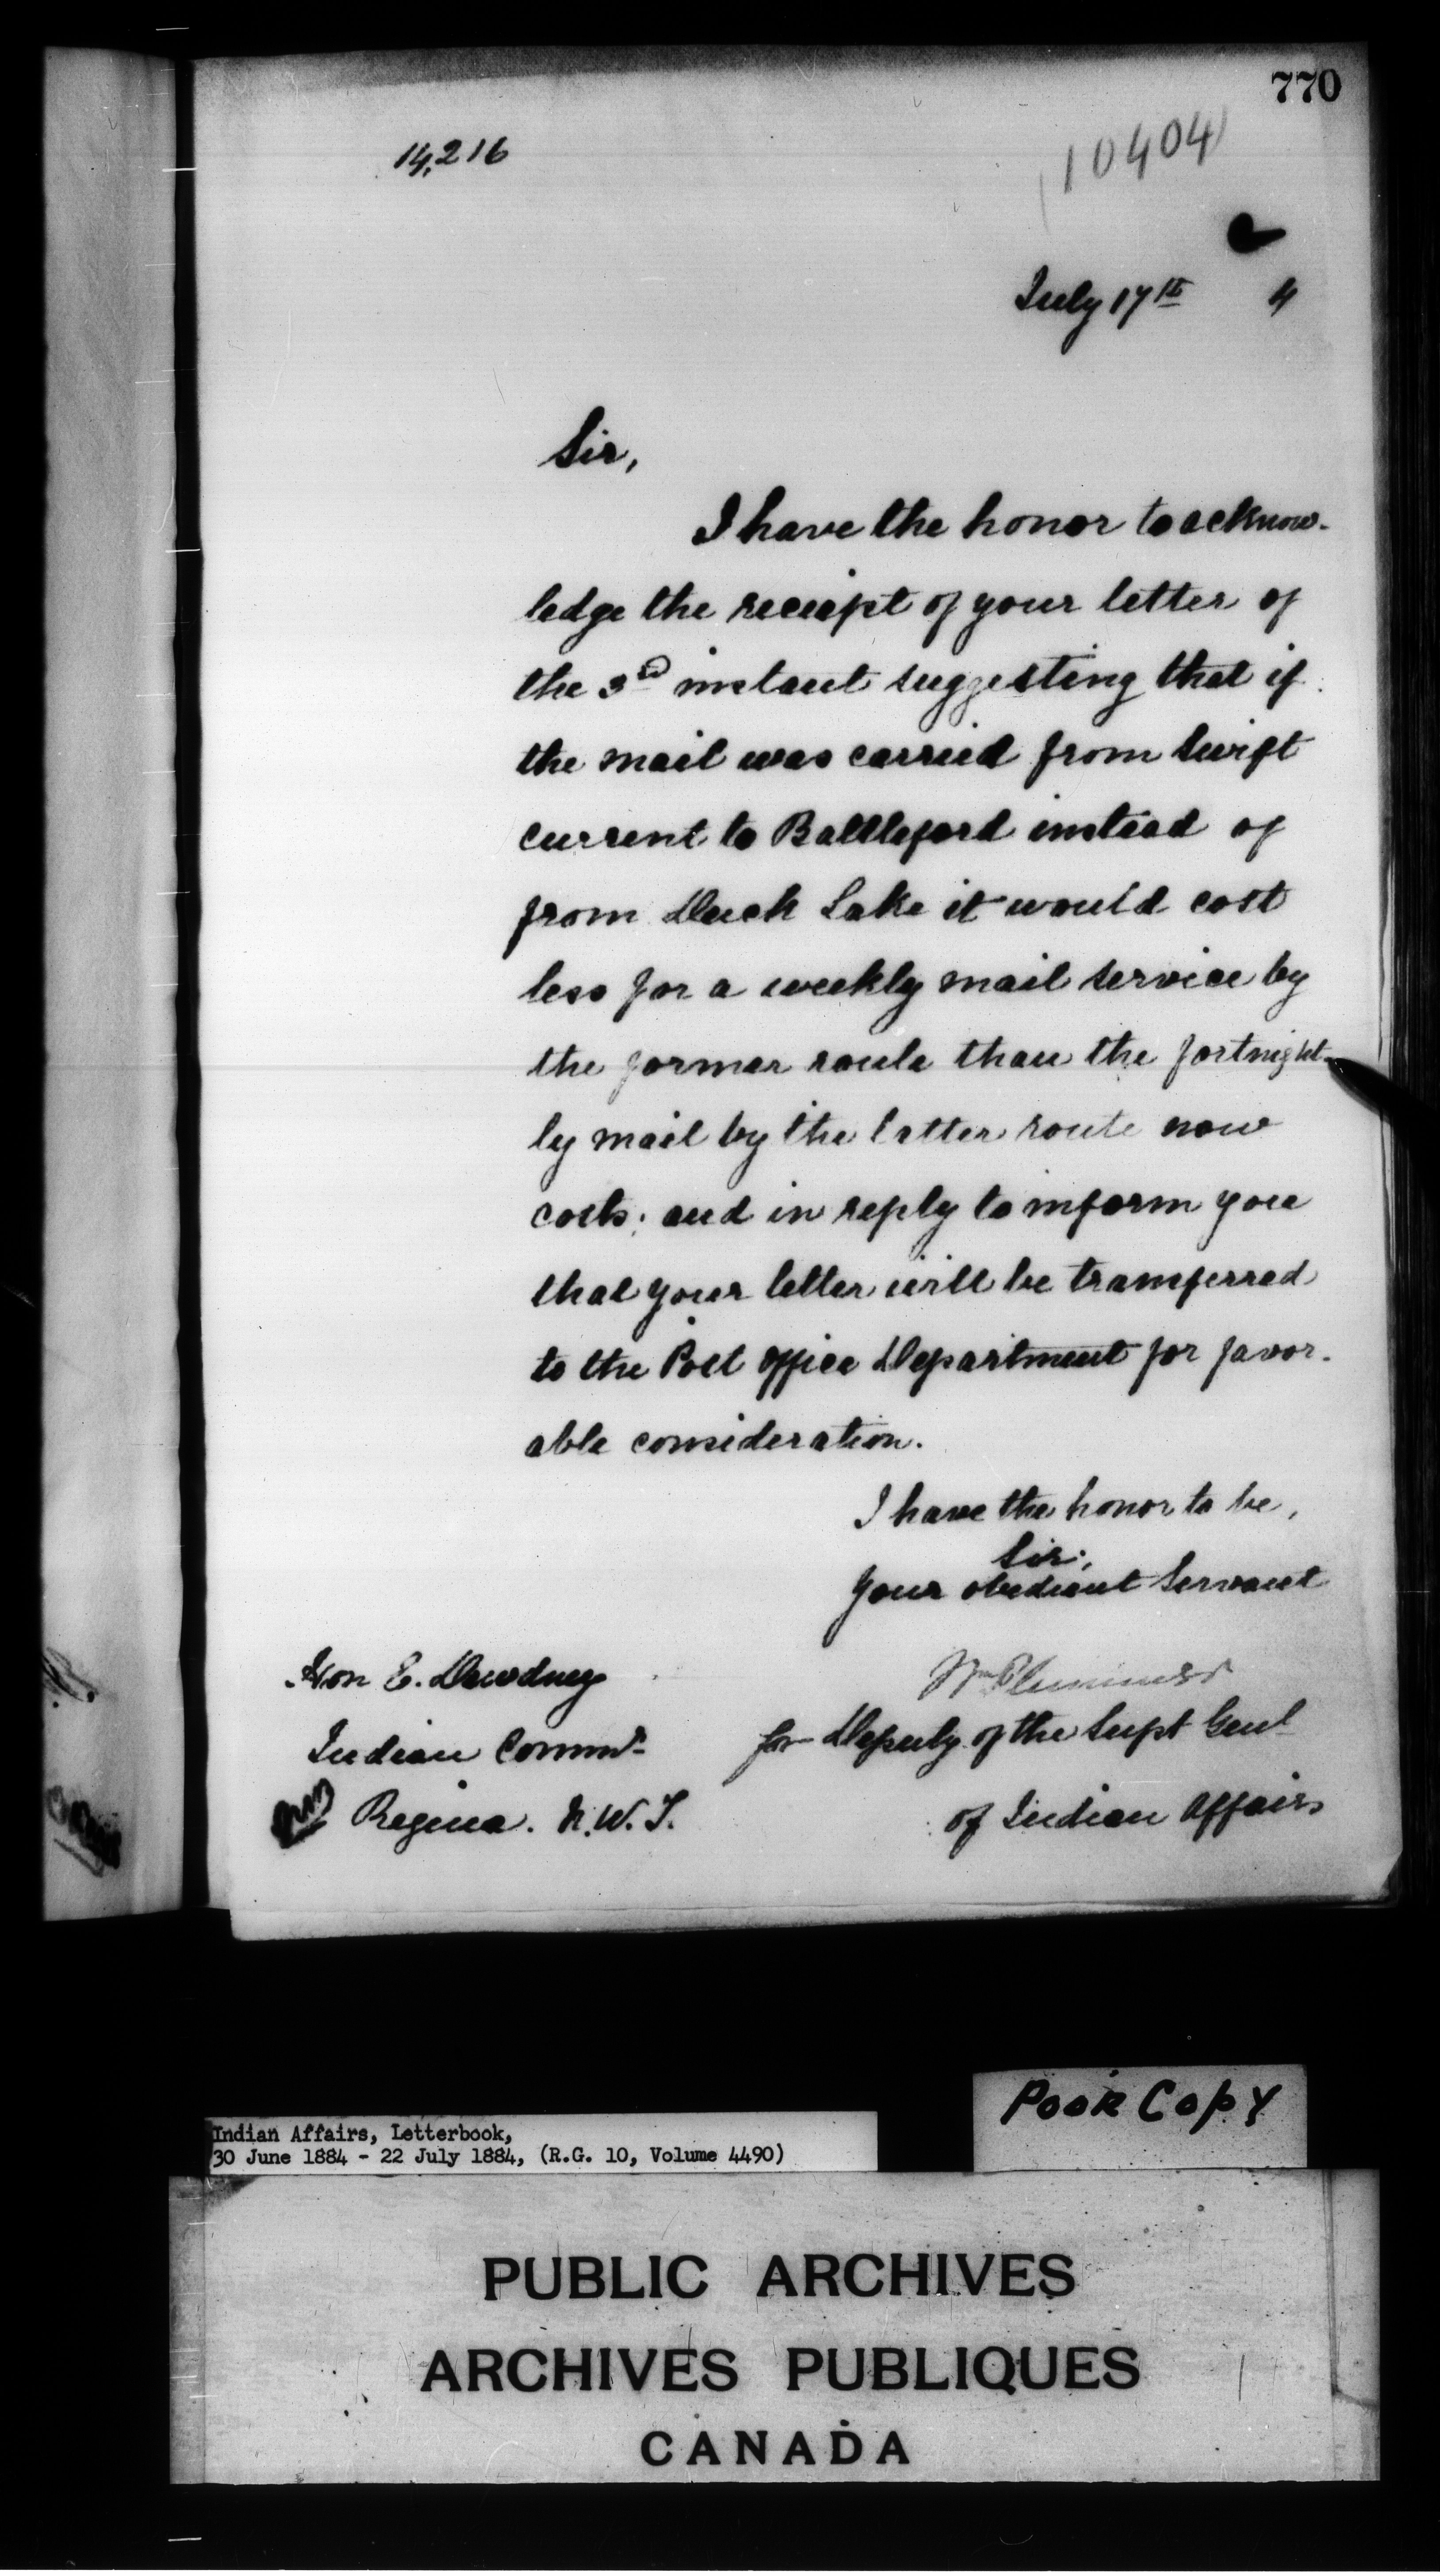 770
14,216
10404
July 17th 4
Sir,
I have the honor to acknow-
ledge the receipt of your letter of
the 3rd instant suggesting that if
the mail was carried from Swift
current to Battleford instead of
from Duck Lake it would cost
less for a weekly mail service by
the former route than the fortnight-
ly mail by the latter route now
costs; and in reply to inform you
that your letter will be transferred
to the Post Office Department for favor-
able consideration.
I have the honor to be,
Sir,
Your obedient Servant
Wm Plummer
for Deputy of the Supt Genl
of Indian Affairs
Hon E. Dewdney
Indian Commr
Regina. N.W.T.
Poor Copy
Indian Affairs, Letterbook,
30 June 1884 - 22 July 1884, (R.G. 10, Volume 4490)
PUBLIC ARCHIVES
ARCHIVES PUBLIQUES
CANADA